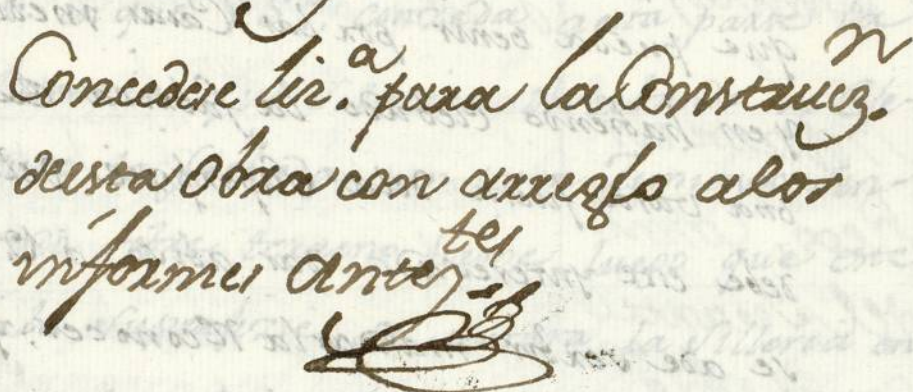 Concedese liz.ª para la Construcz.n
deesta Obra con arreglo alos
informes antez.tes